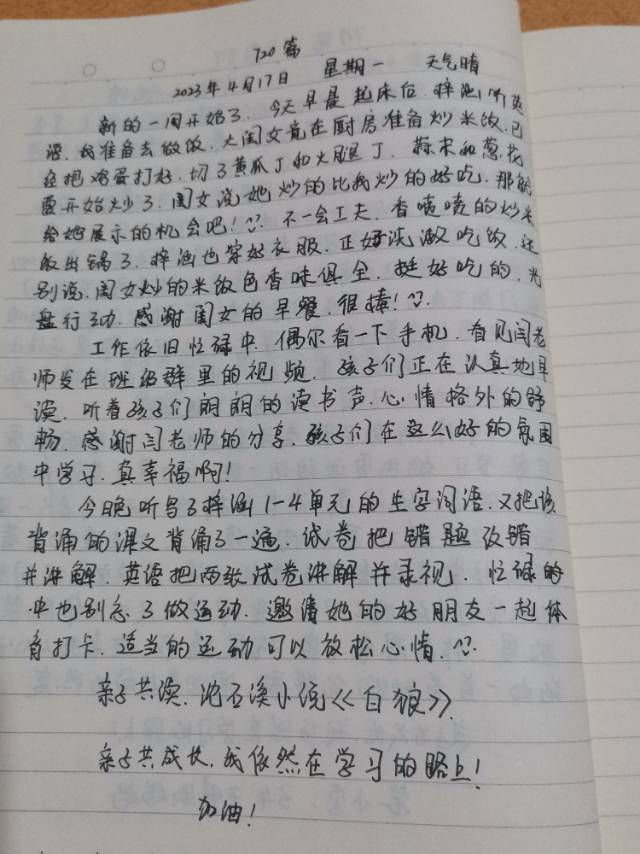 720篇
2023年4月17日 星期一 天气晴
新的一周开始了.今天早晨起床后.梓涵听英
语.我准备去做饭.大闺女竟在厨房准备炒米饭.已
经把鸡蛋打好.切了黄瓜丁和火腿丁.蒜末和葱花
要开始炒了.闺女说她炒的比我炒的好吃.那就
给她展示的机会吧!不一会工夫.香喷喷的炒米
饭出锅了.梓涵也穿好衣服.正好洗漱吃饭.还
别说.闺女炒的米饭色香味俱全.挺好吃的.光
盘行动.感谢闺女的早餐.很棒!
工作依旧忙碌中.偶尔看一下手机.看见闫老
师发在班级群里的视频.孩子们正在认真地早
读.听着孩子们朗朗的读书声.心情格外的舒
畅.感谢闫老师的分享.孩子们在这么好的氛围
中学习.真幸福啊!
今晚听写了梓涵1-4单元的生字词语.又把该
背诵的课文背诵了一遍.试卷把错题改错
并讲解.英语把两张试卷讲解并录视.忙碌的
中也别忘了做运动.邀请她的好朋友一起体
育打卡.适当的运动可以放松心情.
亲子共读.沈石溪小说《白狼》.
亲子共成长.我依然在学习的路上!
加油!